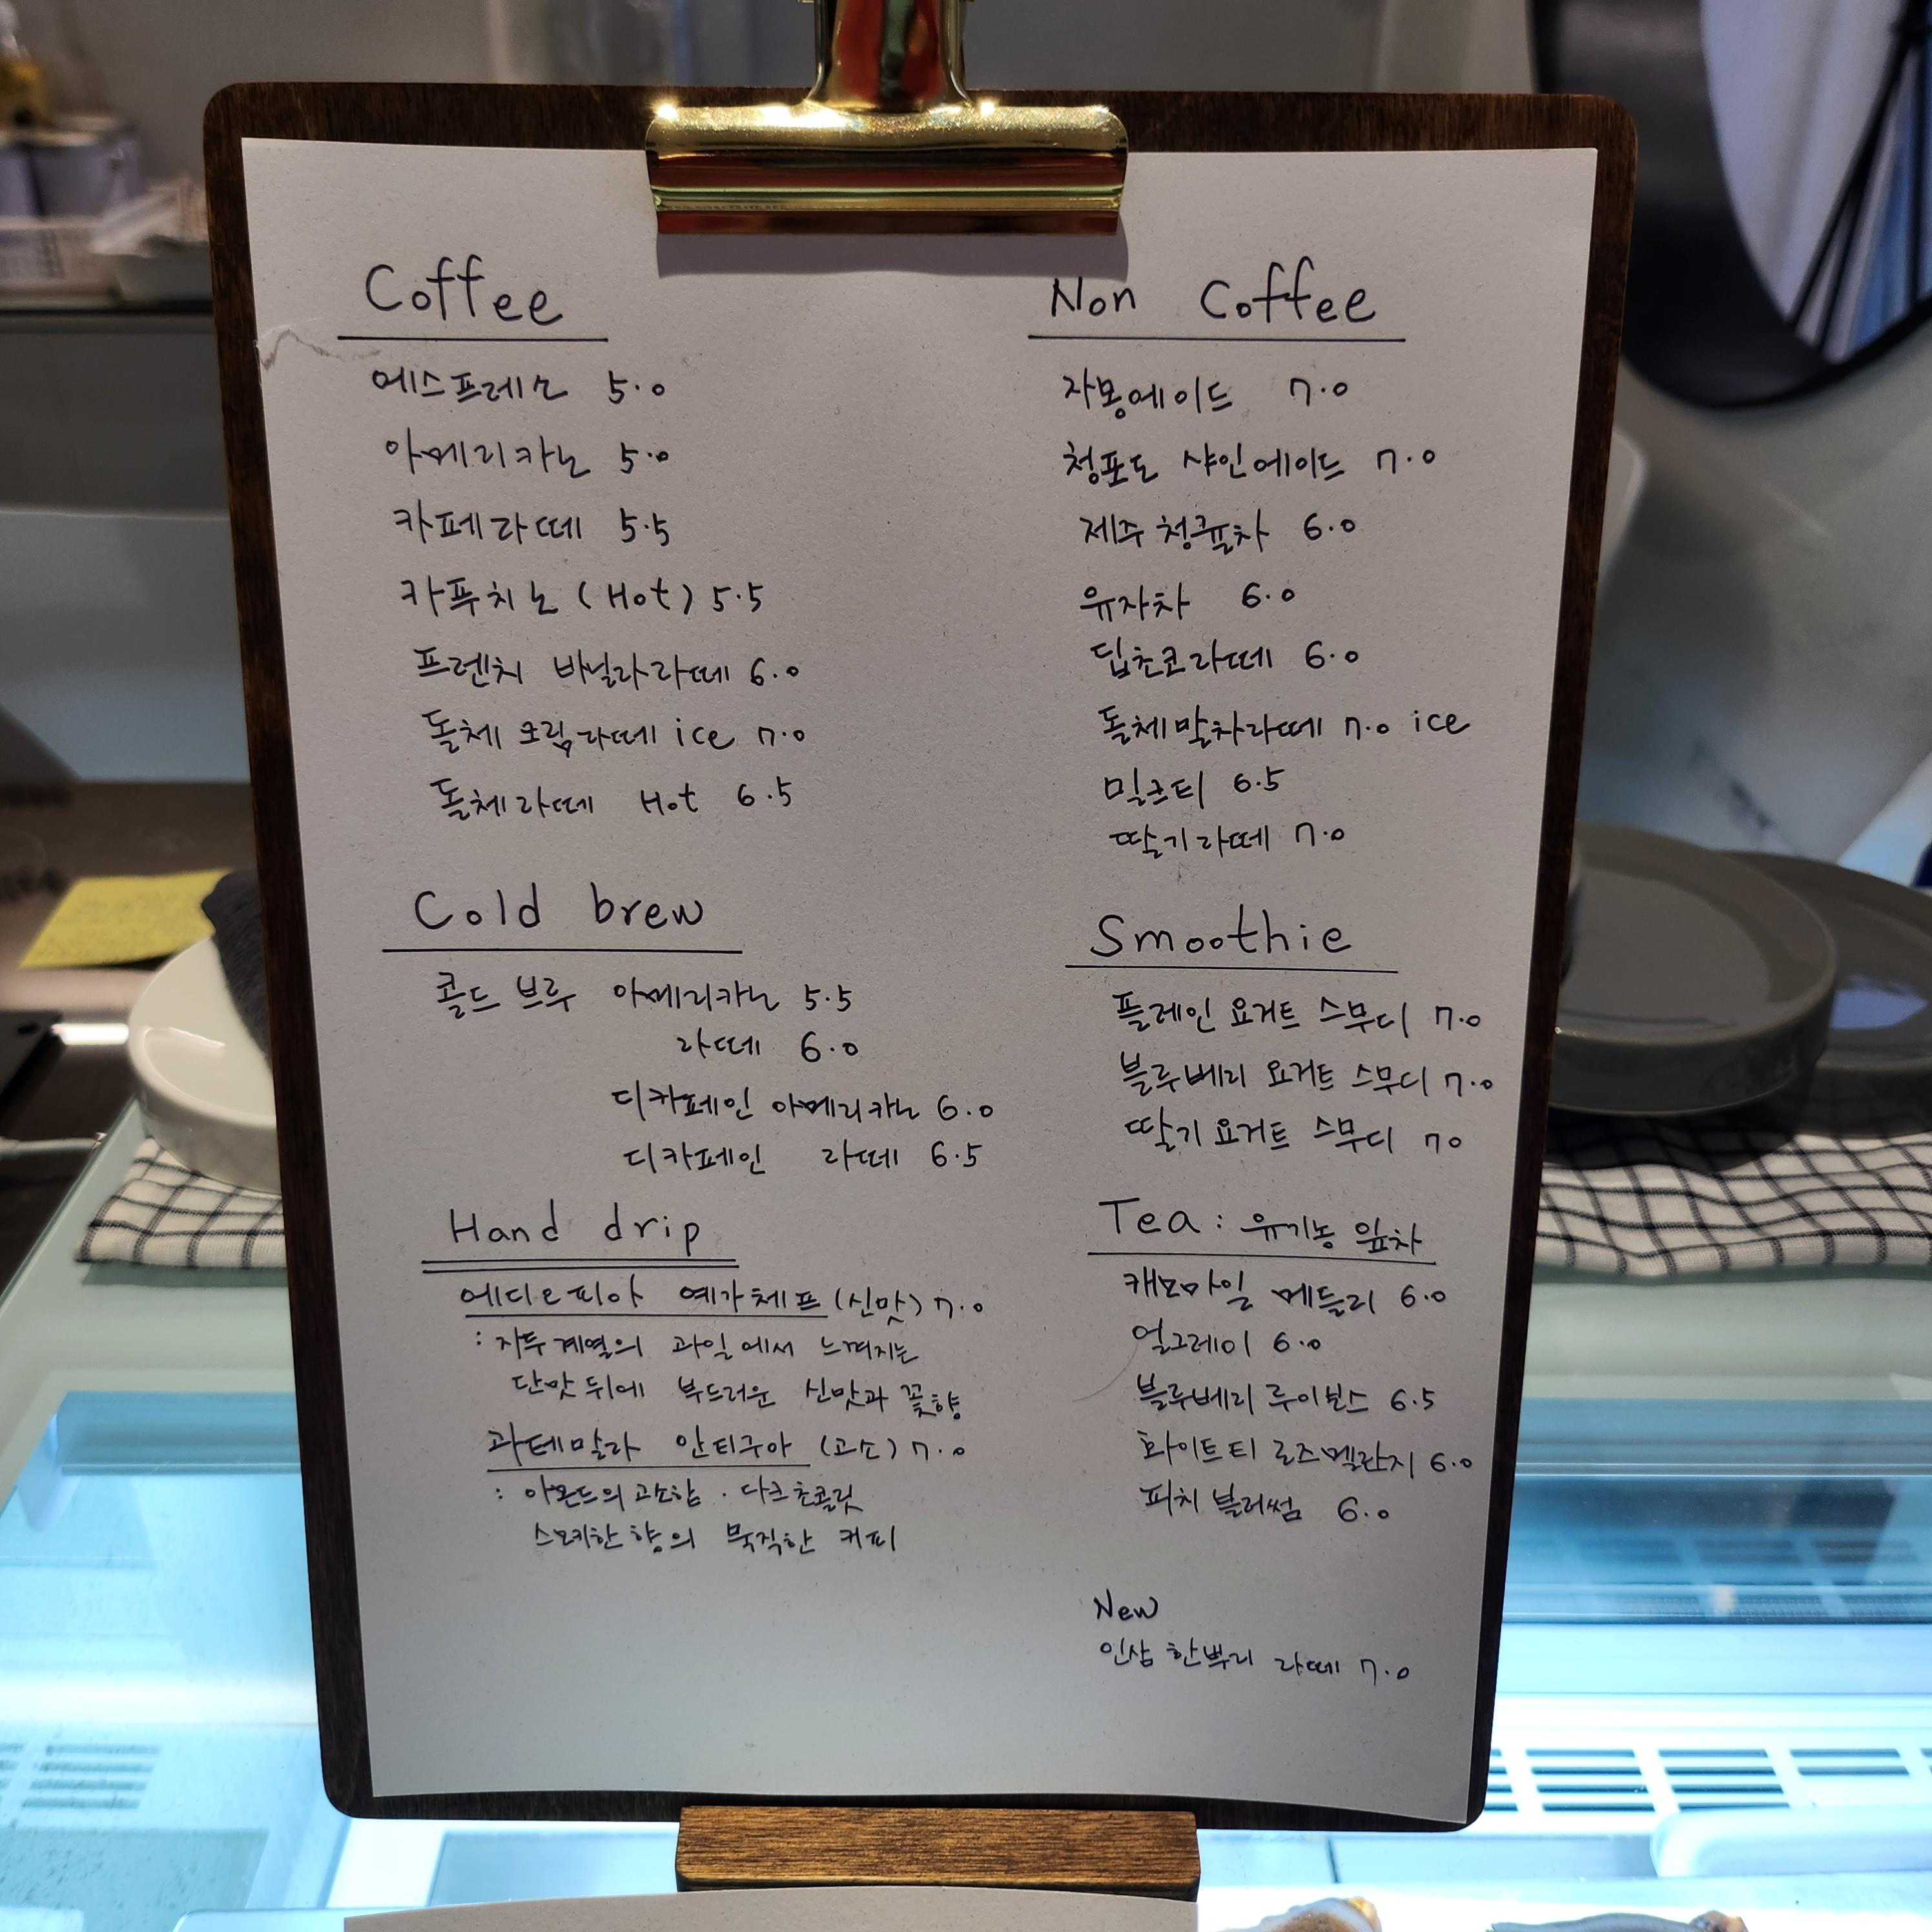 Coffee
에스프레소 5.0
아메리카노 5.0
카페라떼 5.5
카푸치노 (Hot) 5.5
프렌치 바닐라라떼 6.0
돌체 크림라떼 ice 7.0
돌체라떼 Hot 6.5
Cold brew
콜드 브루 아메리카노 5.5
라떼 6.0
디카페인 아메리카노 6.0
디카페인 라떼 6.5
Hand drip
에디오피아 예가체프 (신맛) 7.0
: 자두계열의 과일에서 느껴지는
단맛 뒤에 부드러운 신맛과 꽃향
과테말라 안티구아 (고소) 7.0
: 아몬드의 고소함 . 다크초콜릿
스모키한 향의 묵직한 커피
Non Coffee
자몽에이드 7.0
청포도 샤인에이드 7.0
제주 청귤차 6.0
유자차 6.0
딥초코라떼 6.0
돌체말차라떼 7.0 ice
밀크티 6.5
딸기라떼 7.0
Smoothie
플레인 요거트 스무디 7.0
블루베리 요거트 스무디 7.0
딸기 요거트 스무디 70
Tea : 유기농 잎차
캐모마일 메들리 6.0
얼그레이 6.0
블루베리 루이보스 6.5
화이트티 로즈멜란지 6.0
피치 블러썸 6.0
New
인삼 한뿌리 라떼 7.0